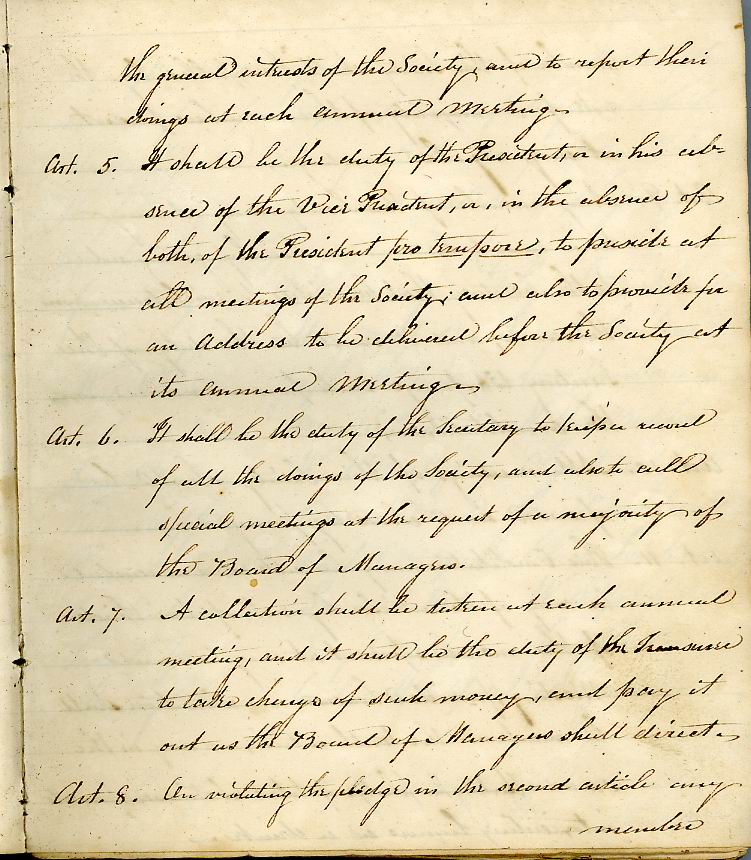 the general interests of the Society, and to report their
doings at each annual meeting.
Art. 5. It shall be the duty of the President, or in his ab-
sence of the Vice President, or, in the absence of
both, of the President pro tempore, to preside at
all meetings of the Society; and also to provide for
an Address to be delivered before the Society at
its annual meeting.
Art. 6. It shall be the duty of the Secretary to keep a record
of all the doings of the Society, and also to call
special meetings at the request of a majority of
the Board of Managers.
Art. 7. A collection shall be taken at each annual
meeting, and it shall be the duty of the Treasurer
to take charge of such money, and pay it
out as the Board of Managers shall direct.
Art. 8. On violating the pledge in the second article any
member